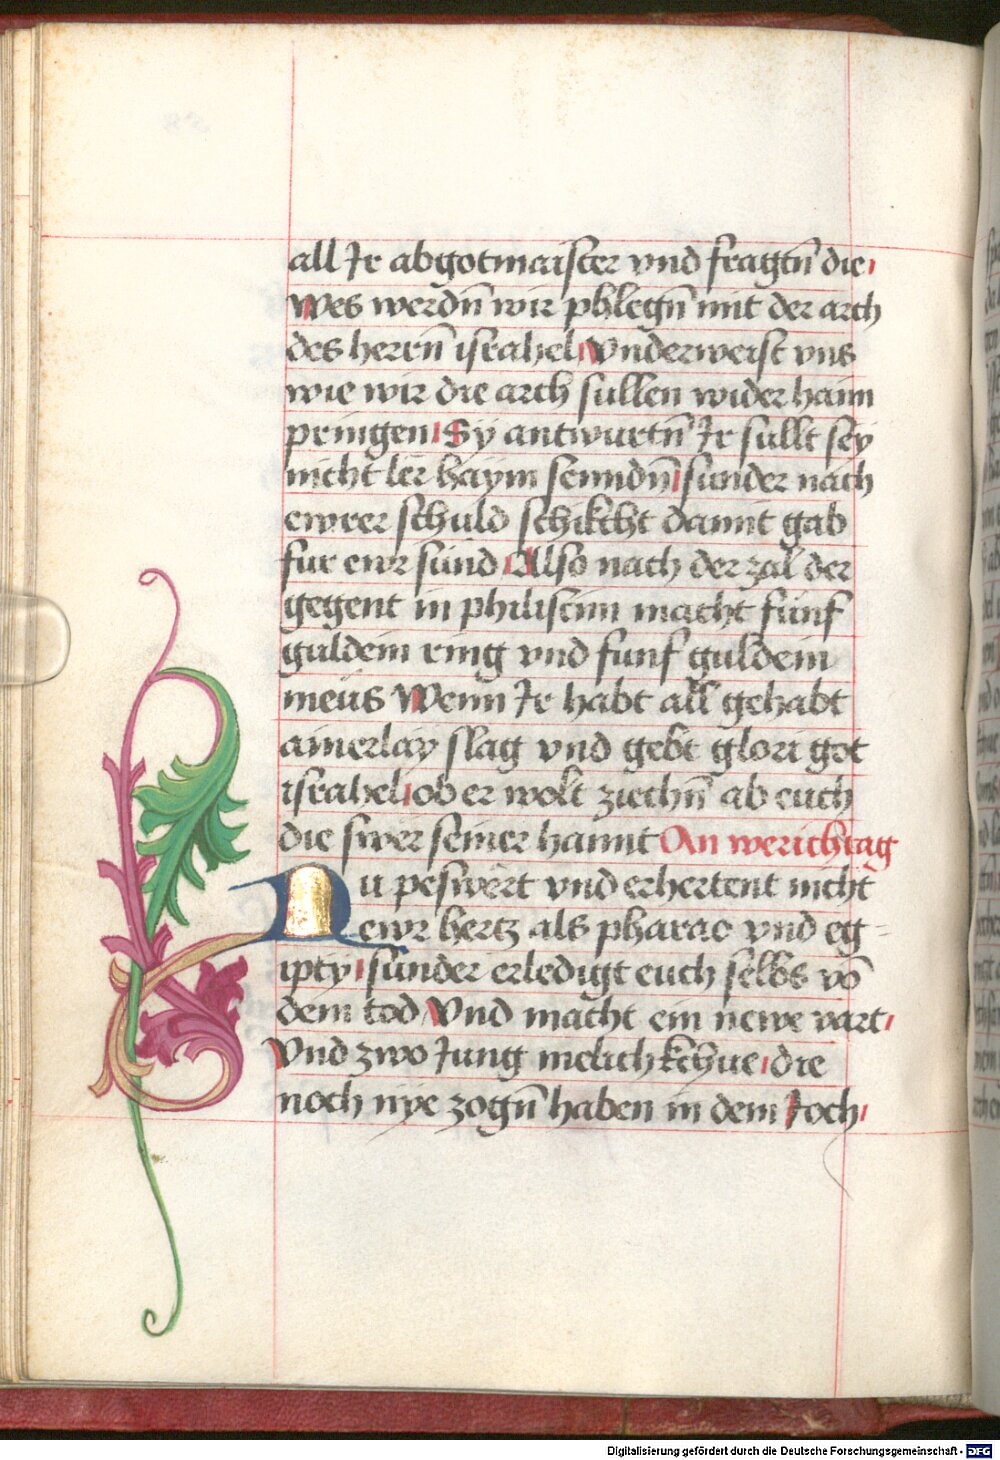 all Ir abgotmaister vnd fragtn̄ die
Wes werdn̄ wir phlegn̄ mit der arch
des herrn̄ israhel Vnderweist vns
wie wir die arch sullen wider haim
pringen Sy antwurtn̄ Ir sullt sey
nicht lër haym senndn̄ sunder nach
ewrer schuld schikcht damit gab
fur ewr sünd Also nach der zal der
gegent in philistim macht fünf
guldein ring vnd funf guldein
meüs Wenn Ir habt all gehabt
ainerlay slag vnd gebt glori got
israhel ob er wolt ziechn̄ ab euch
die swër seiner hannt An werichtag
Nu peswërt vnd erhertent nicht
ewr hertz als pharao vnd eg=
ipty sunder erledigt euch selbs vō
dem tod Vnd macht ein newe vart
Vnd zwo Jung melich kchüe die
noch nye zogn̄ haben in dem Joch
Digitalisierung gefördert durch die Deutsche Forschungsgemeinschaft - DFG